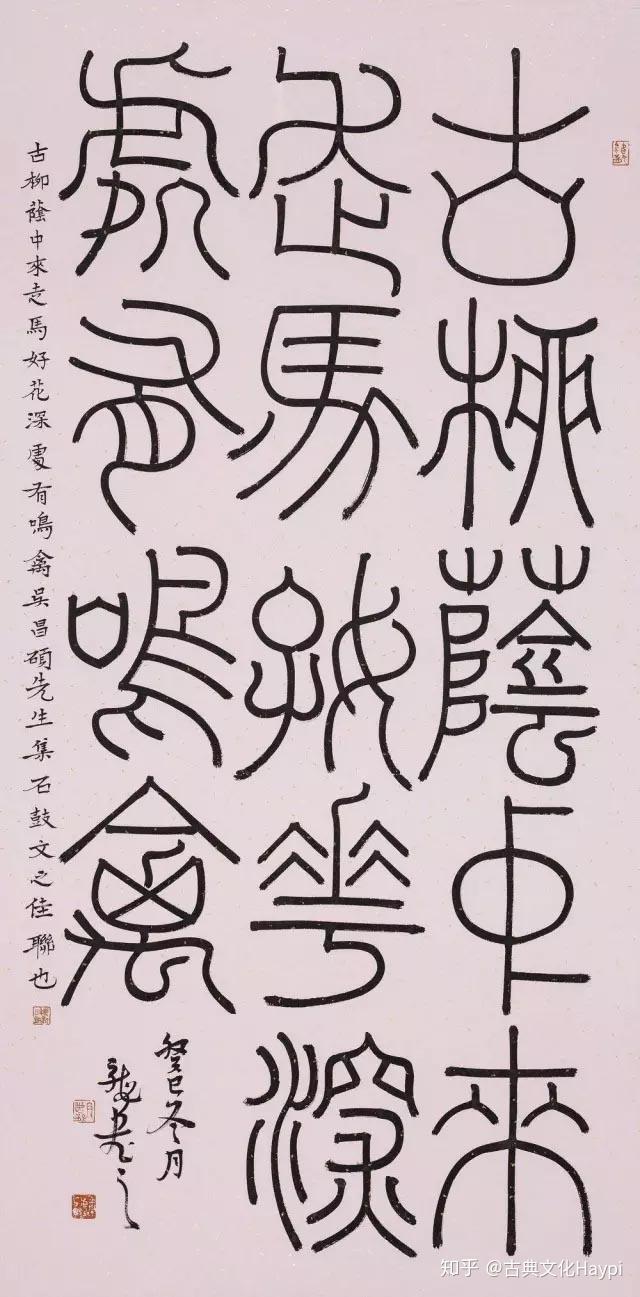 古柳蔭中來
走馬好花深
處有鳴禽
古柳蔭中來走馬好花深處有鳴禽吳昌碩先生集石鼓文之佳聯也
癸巳冬月
知乎 @古典文化Haypi